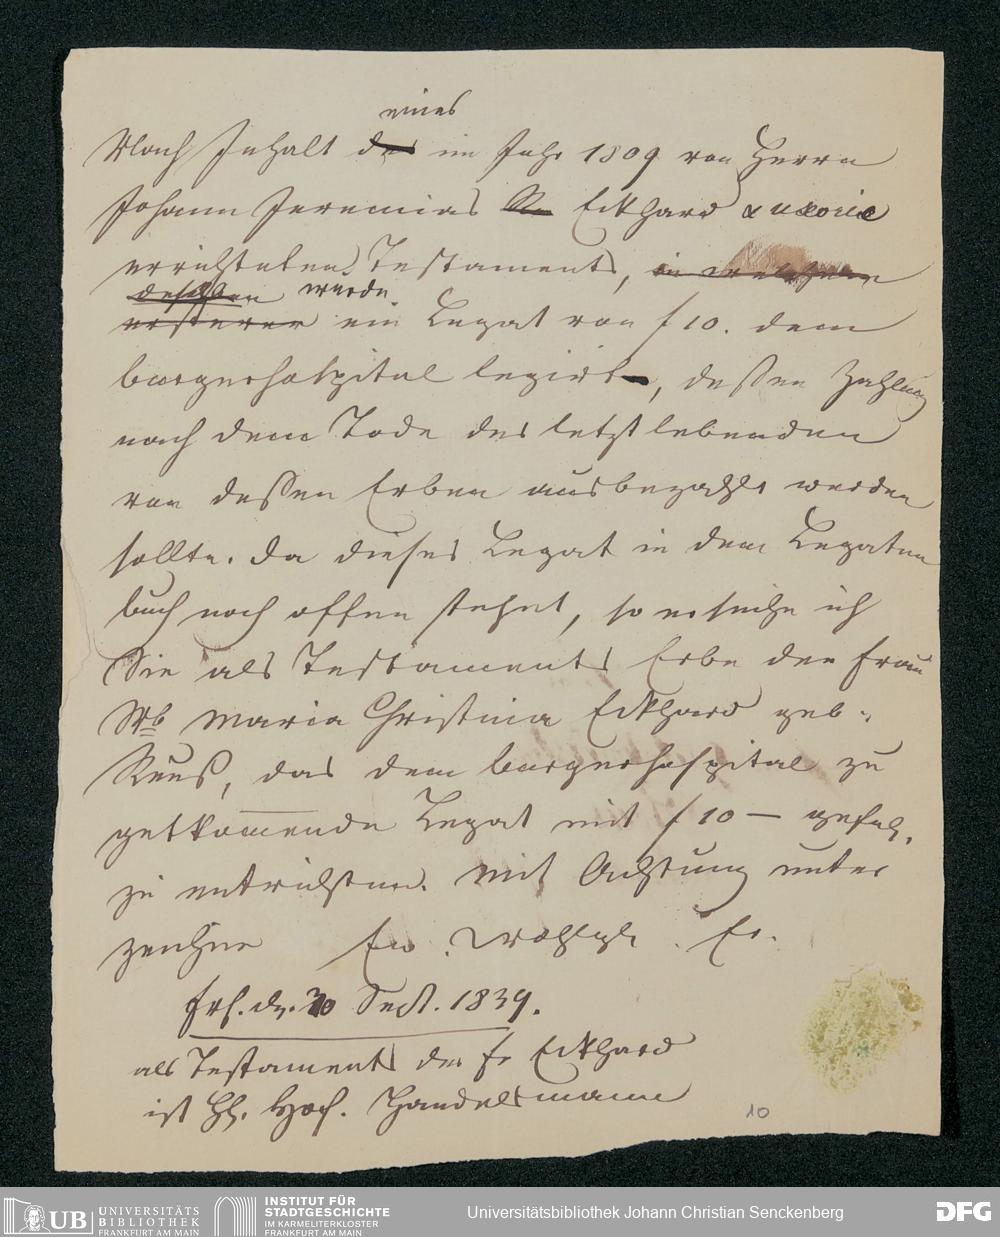 eines
Nach Inhalt des im Jahr 1809 von Herrn
Johann Jeremias Eckhard & uxoris
errichteten Testaments, in welchem
desselben wurde
ersterer ein Legat von f 10. dem
burgerhospital legirt, deßen Zahlung
nach dem Tode des letzt lebenden
von deßen Erben ausbezahlt werden
sollte. Da dieses Legat in dem Legaten
buch noch offen stehet, so ersuche ich
Sie als Testaments Erbe der Frau
Wb Maria Christina Eckhard geb.
Reuß, das dem burgerhospital zu
gutkommende Legat mit f 10 — gefal.
zu entrichten. Mit Achtung unter
zeichne Ew. Wohlgb.
Frf. d. 30 Sept. 1839.
als Testaments der Fr Eckhard
ist Handelsmann
10
UB UNIVERSITÄTS
BIBLIOTHEK
FRANKFURT AM MAIN
INSTITUT FÜR
STADTGESCHICHTE
IM KARMELITERKLOSTER
FRANKFURT AM MAIN
Universitätsbibliothek Johann Christian Senckenberg
DFG